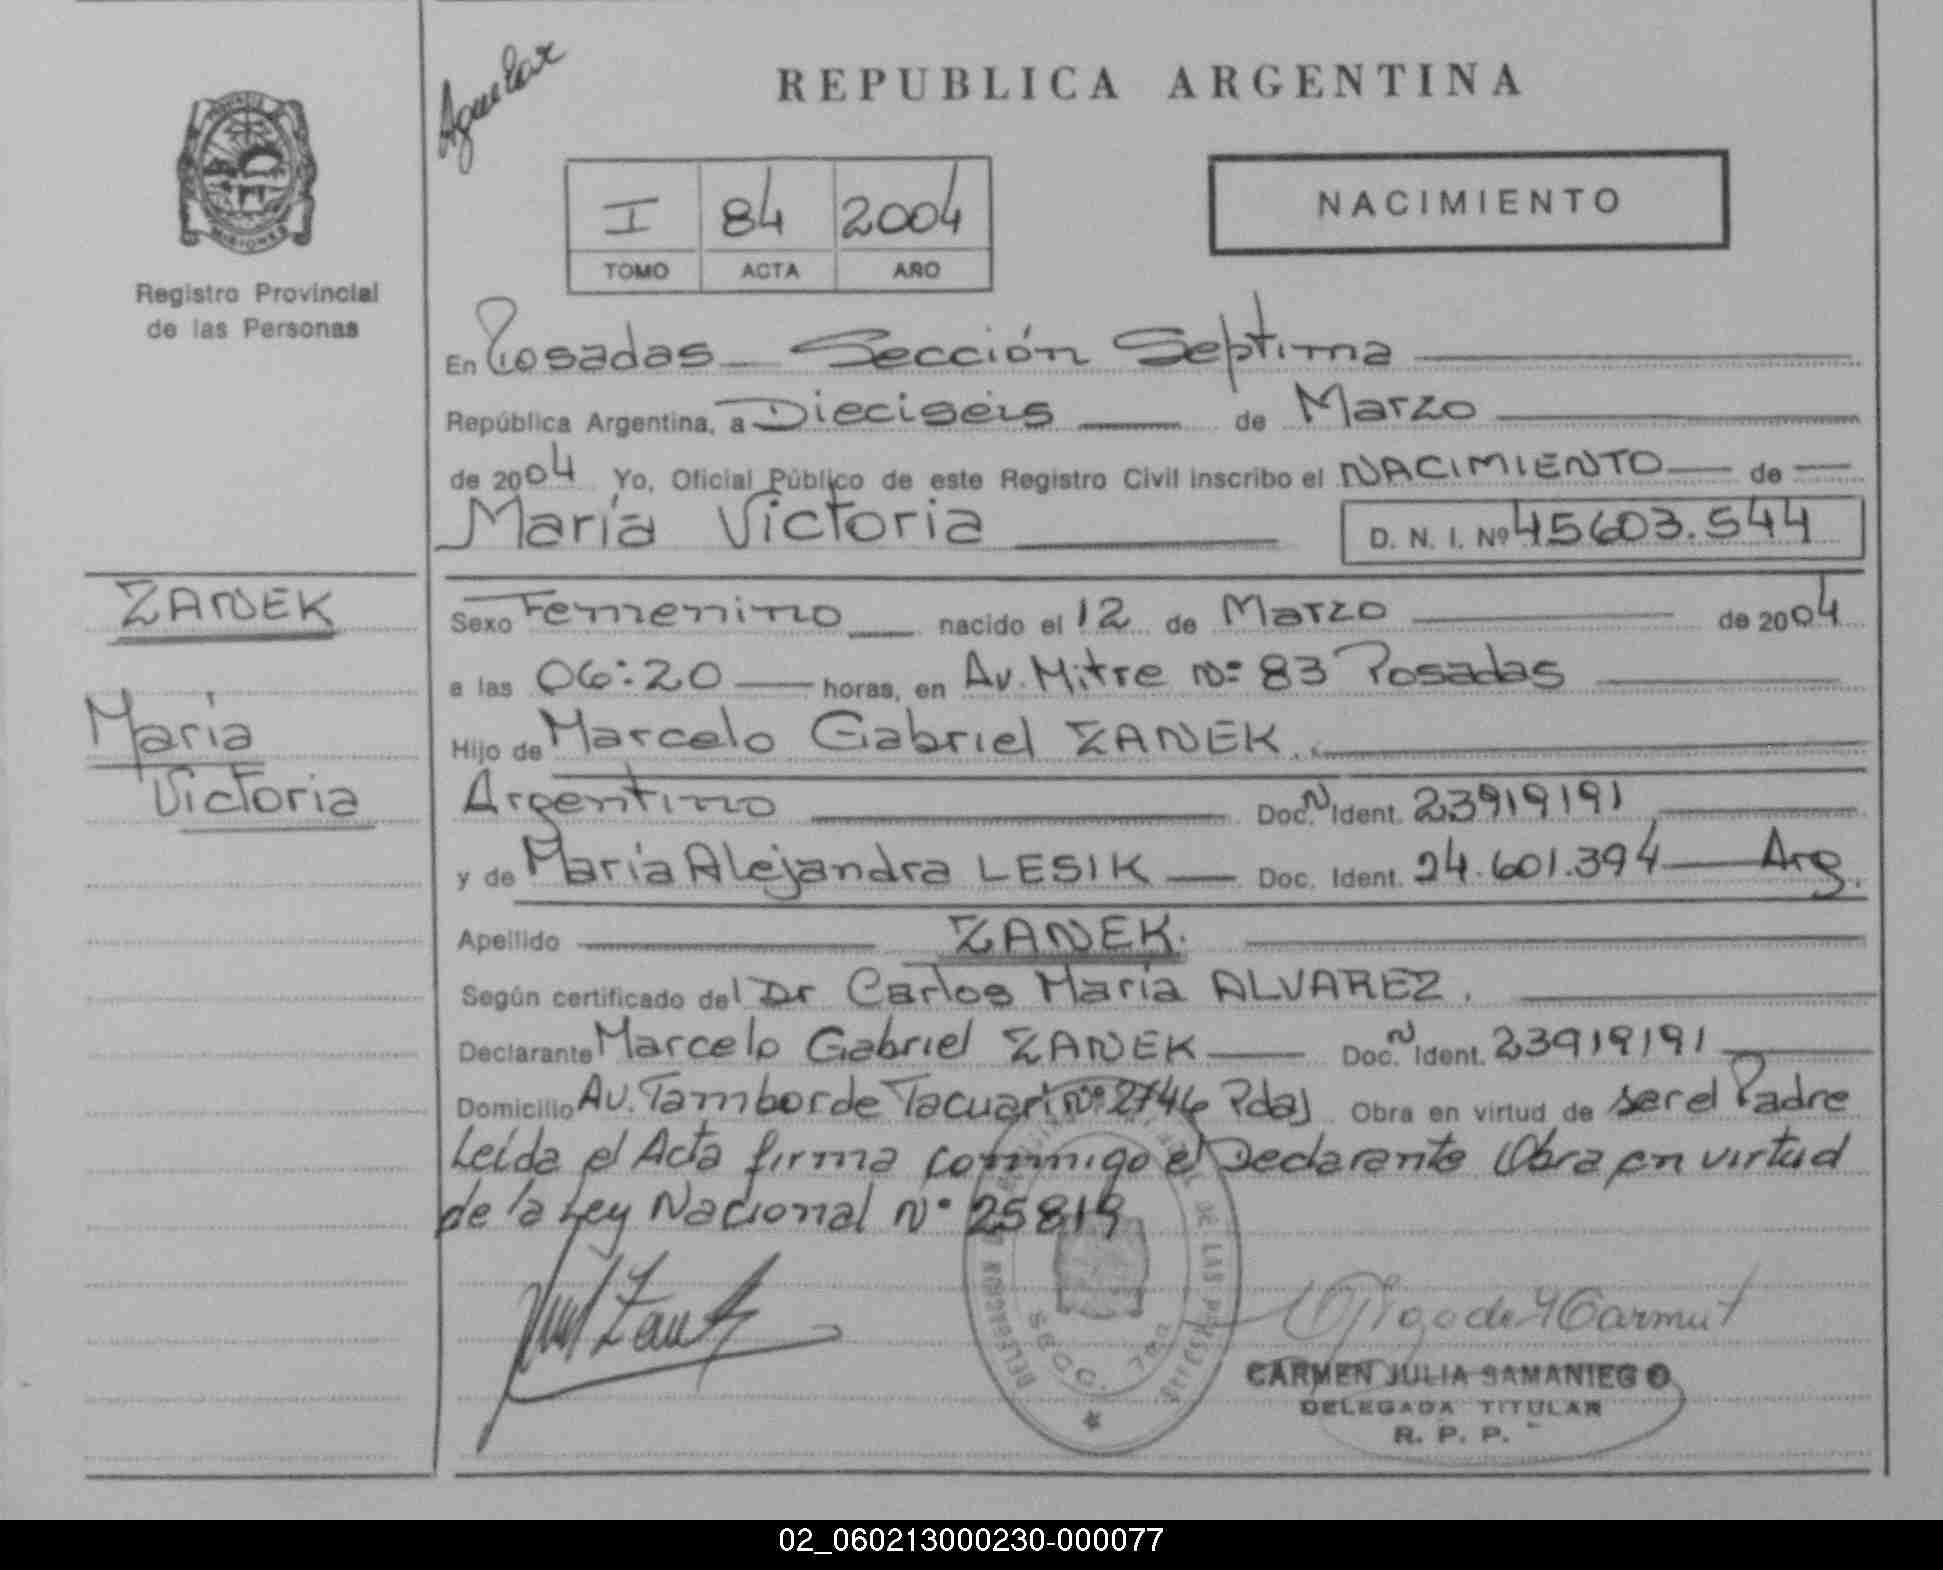 Aguilar
REPUBLICA ARGENTINA
MISIONES
Registro Provincial
de las Personas
I 84 2004
TOMO ACTA AÑO
NACIMIENTO
En Posadas Sección Septima
República Argentina, a Dieciseis de Marzo
de 2004 Yo, Oficial Público de este Registro Civil inscribo el NACIMIENTO de
María Victoria D. N. I. Nº 45603.544
ZANEK
María
Victoria
Sexo Femenino nacido el 12 de Marzo de 2004
a las 06:20 horas, en Av. Mitre Nº 83 Posadas
Hijo de Marcelo Gabriel ZANEK.
Argentino Doc. N Ident. 23919191
y de María Alejandra LESIK Doc. Ident. 24.601.394 Arg.
Apellido ZANEK.
Según certificado del Dr Carlos María ALVAREZ.
Declarante Marcelo Gabriel ZANEK Doc. N Ident. 23919191
Domicilio Av. Tambor de Tacuarí Nº 2746 Pdas Obra en virtud de ser el Padre
Leída el Acta firma conmigo el Declarante Obra en virtud
de la Ley Nacional Nº 25819
DE LAS PERSONAS
SECC. 7ma
CARMEN JULIA SAMANIEGO
DELEGADA TITULAR
R. P. P.
02_060213000230-000077